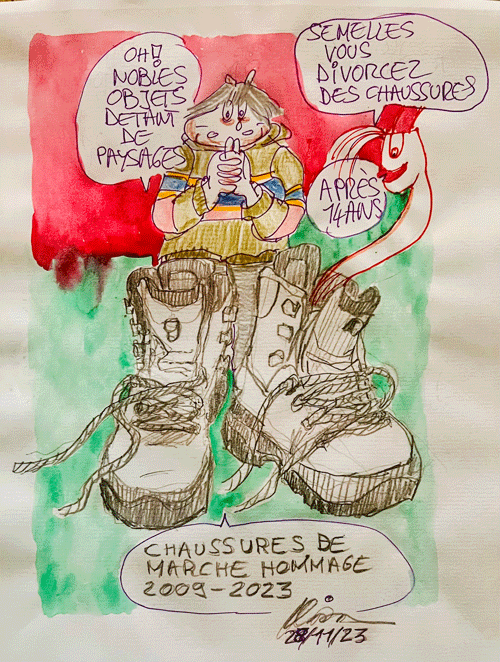 OH!
NOBLES
OBJETS
DETANT
DE
PAYSAGES
SEMELLES
VOUS
DIVORCEZ
DES CHAUSSURES
APRÈS
14 ANS
CHAUSSURES DE
MARCHE HOMMAGE
2009-2023
28/11/23